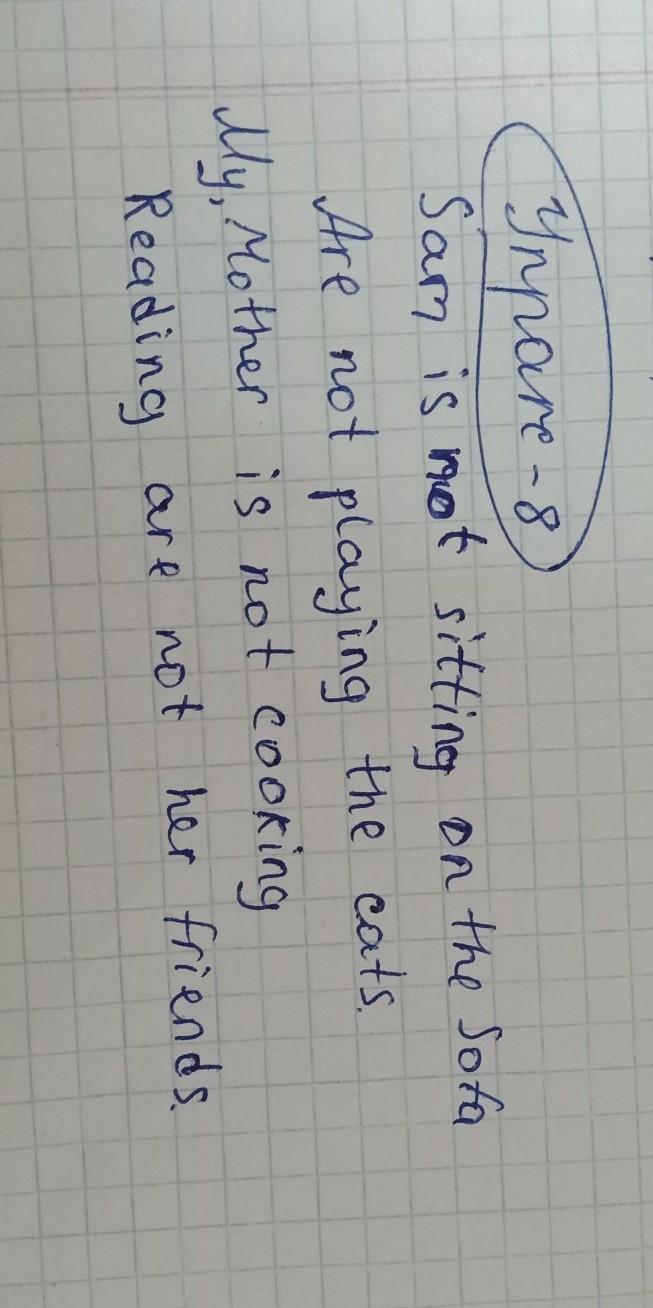 Упраж-8
Sam is not sitting on the Sofa
Are not playing the cats.
My, Mother is not cooking
Reading are not her friends.